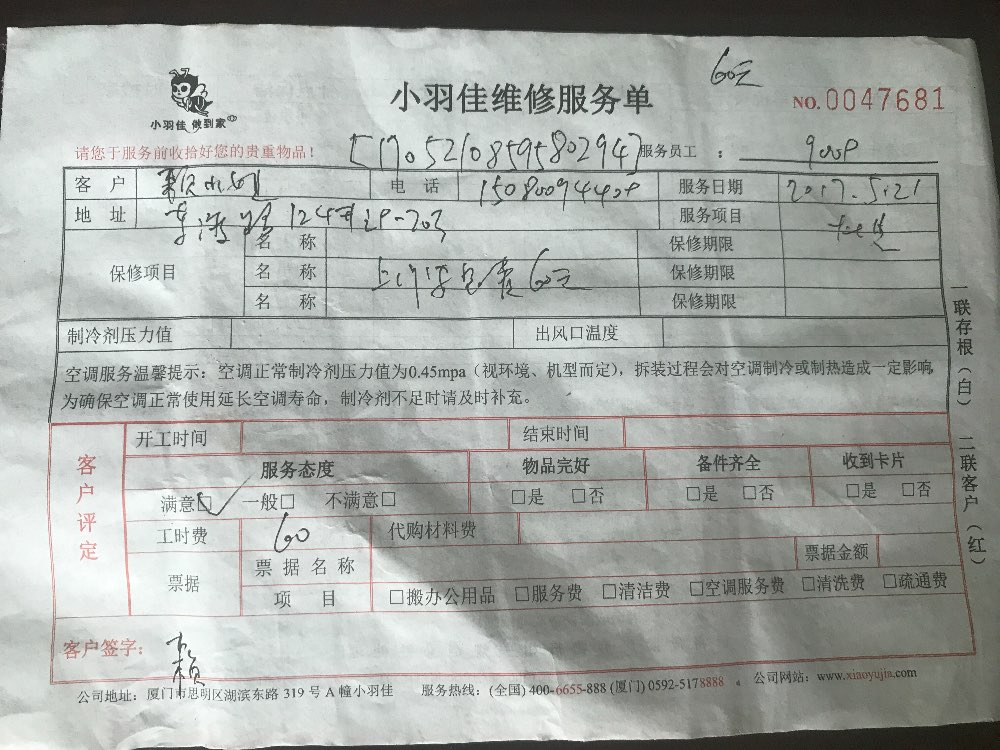 60元
小羽佳维修服务单
NO.0047681
小羽佳 做到家
请您于服务前收拾好您的贵重物品！
[1705210859580294] 服务员工：
客户 电话 15080094408 服务日期 2017.5.21
地址 124 -203 服务项目
保修项目 名称 保修期限
名称 上门 60元 保修期限
名称 保修期限
制冷剂压力值 出风口温度
空调服务温馨提示：空调正常制冷剂压力值为0.45mpa（视环境、机型而定），拆装过程会对空调制冷或制热造成一定影响
为确保空调正常使用延长空调寿命，制冷剂不足时请及时补充。
一联存根（白） 二联客户（红）
客户评定
开工时间 结束时间
服务态度 物品完好 备件齐全 收到卡片
满意☑ 一般□ 不满意□ □是 □否 □是 □否 □是 □否
工时费 60 代购材料费
票据 票据名称 票据金额
项目 □搬办公用品 □服务费 □清洁费 □空调服务费 □清洗费 □疏通费
客户签字： 赖
公司地址：厦门市思明区湖滨东路 319 号 A 幢小羽佳 服务热线：(全国) 400-6655-888 (厦门) 0592-5178888 。 公司网站：www.xiaoyujia.com